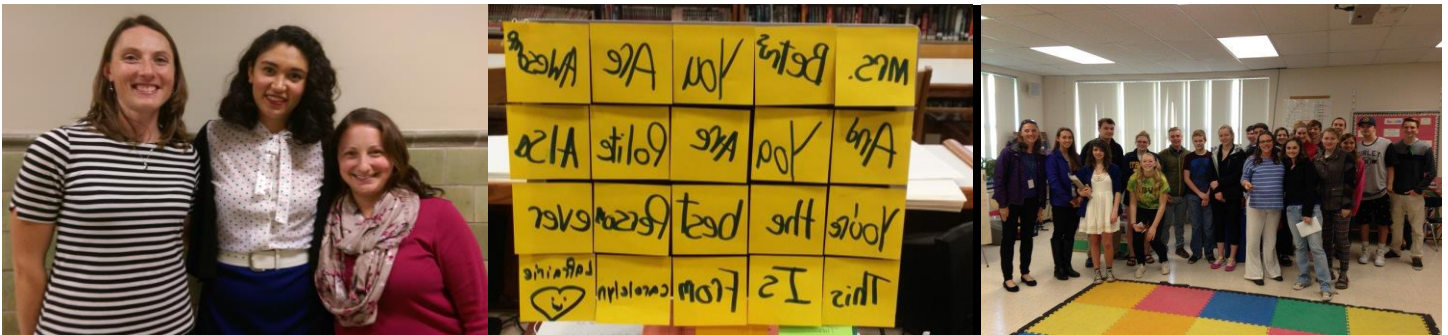 Mrs. Beth's You Are Awesome
And You Are Polite Also
You're the best Person ever
This Is From Carolelyn LaPrairie